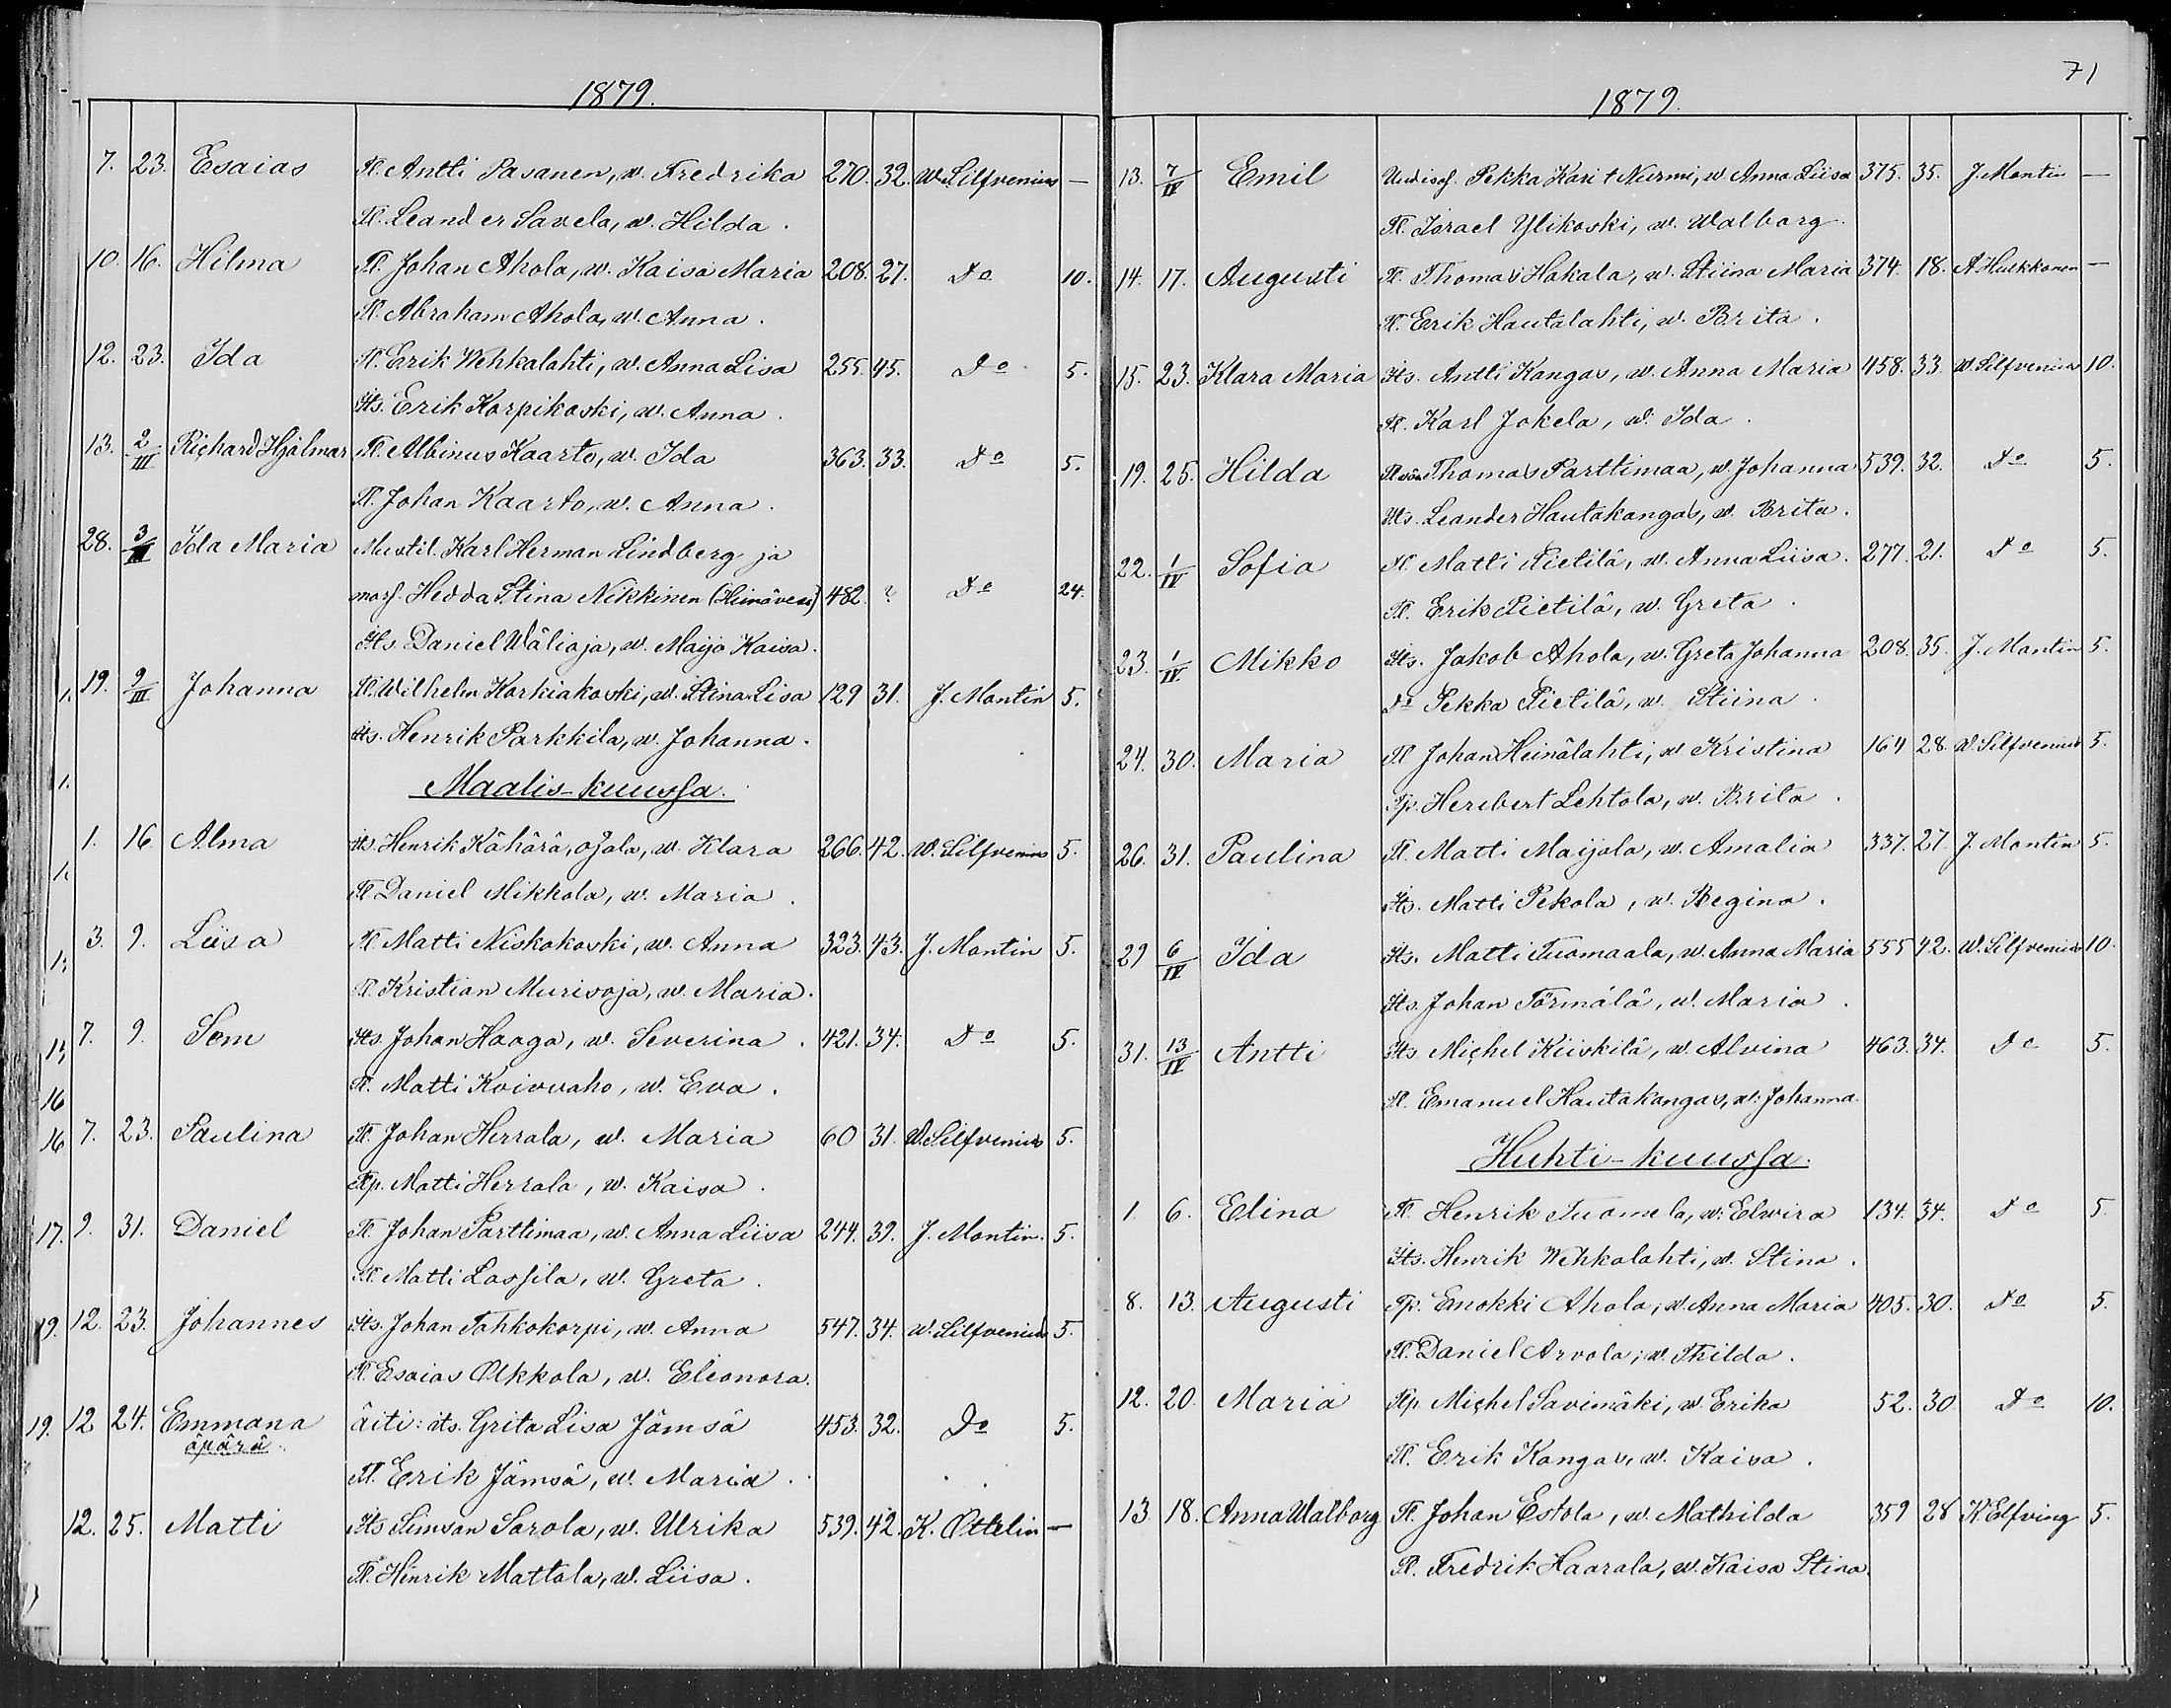 1879.
7. 23. Esaias Tl. Antti Pasanen, w. Fredrika 270. 32. W. Silfvenius —
Tl. Leander Savela, w. Hilda.
10. 16. Hilma Tl. Johan Ahola, w. Kaisa Maria 208. 27. Do 10.
Tl. Abraham Ahola, w. Anna.
12. 23. Ida Tl. Erik Wehkalahti, w. Anna Lisa 255. 45. Do 5.
Its. Erik Korpikoski, w. Anna.
13. 2/III Richard Hjalmar Tl. Albinus Kaarto, w. Ida 363. 33. Do 5.
Tl. Johan Kaarto, w. Anna.
28. 3/III Ida Maria Mustil. Karl Herman Lindberg ja
mors. Hedda Stina Nikkinen (Heinävesi) 482. ? Do 24.
Its. Daniel Wälioja, w. Maija Kaisa.
19. 9/III Johanna Tl. Wilhelm Korkiakoski, w. Stina Lisa 129 31. J. Montin 5.
Its. Henrik Parkkila, w. Johanna.
Maalis-kuussa.
1. 16 Alma Its. Henrik Kähärä, ojala, w. Klara 266. 42. W. Silfvenius 5.
Tl. Daniel Mikkola, w. Maria.
3. 9. Liisa Tl. Matti Niskakoski, w. Anna 323. 43. J. Montin 5.
Tl. Kristian Murisoja, w. Maria.
7. 9. Sem Its. Johan Haaga, w. Severina. 421. 34. Do 5.
Tl. Matti Koivuaho, w. Eva.
7. 23. Paulina Tl. Johan Herrala, w. Maria 60 31. W. Silfvenius 5.
Tp. Matti Herrala, w. Kaisa.
9. 31. Daniel Tl. Johan Parttimaa, w. Anna Liisa 244. 39. J. Montin. 5.
Tl. Matti Lassila, w. Greta.
12. 23. Johannes Its. Johan Tahkokorpi, w. Anna 547. 34. W. Silfvenius 5.
Tl. Esaias Olkkola, w. Eleonora.
12 24. Emmana äiti: its. Grita Lisa Jämsä 453. 32. Do 5.
äpärä.
Tl. Erik Jämsä, w. Maria.
12. 25. Matti Its Simson Sarola, w. Ulrika 539. 42. K. Ottelin —
Tl. Henrik Mattala, w. Liisa.
71
1879.
13. 7/IV Emil Uudisas. Pekka Kari t Nurmi, w. Anna Liisa 375. 35. J. Montin —
Tl. Israel Ylikoski, w. Walborg.
14. 17. Augusti Tl. Thomas Hakala, w. Stiina Maria 374. 18. A Hulkkonen —
Tl. Erik Hautalahti, w. Brita.
15. 23. Klara Maria Its. Antti Kangas, w. Anna Maria 458. 33. W. Silfvenius 10.
Tl. Karl Jokela, w. Ida.
19. 25. Hilda Thomas Parttimaa, w. Johanna 539. 32. Do 5.
Its. Leander Hautakangas, w. Brita.
22. 1/IV Sofia Tl. Matti Pietilä, w. Anna Liisa. 277. 21. Do 5.
Tl. Erik Pietilä, w. Greta.
23. 1/IV Mikko Its. Jakob Ahola, w. Greta Johanna 208. 35. J. Montin 5.
Do Pekka Pietilä, w. Stiina.
24. 30. Maria Tl Johan Heinälahti, w Kristina 164 28. W. Silfvenius 5.
Tp. Heribert Lehtola, w. Brita.
26. 31. Paulina Tl. Matti Maijala, w. Amalia 337. 27. J. Montin 5.
Its. Matti Pekola, w. Regina.
29 6/IV Ida Its. Matti Tuomaala, w. Anna Maria 555 42. W. Silfvenius 10.
Its. Johan Törmälä, w. Maria.
31. 13/IV Antti Its Michel Kiiskilä, w. Alvina 463. 34. Do 5.
Tl. Emanuel Hautakangas, w. Johanna.
Huhti-kuussa.
1. 6. Elina Tl. Henrik Tuomela, w. Elwira 134. 34. Do 5.
Its. Henrik Wehkalahti, w. Stina.
8. 13. Augusti Tp. Enokki Ahola, w. Anna Maria 405. 30. Do 5.
Tl. Daniel Arvola, w. Thilda.
12. 20. Maria Tp. Michel Savimäki, w. Erika 52. 30 Do 10.
Tl. Erik Kangas, w. Kaisa.
13. 18. Anna Walborg Tl. Johan Estola, w. Mathilda 359 28 K. Elfving 5.
Tl. Fredrik Haarala, w. Kaisa Stina.